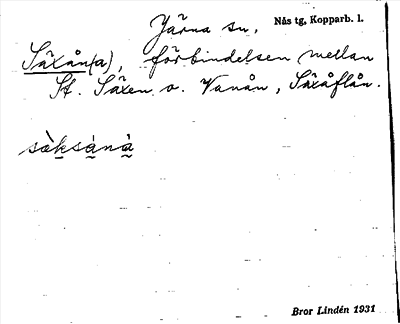 Järna sn. Nås tg, Kopparb. l.
Säxån(a), förbindelsen mellan
St. Säxen o. Vanån, Säxåflån.
sàksánà
Bror Lindén 1931